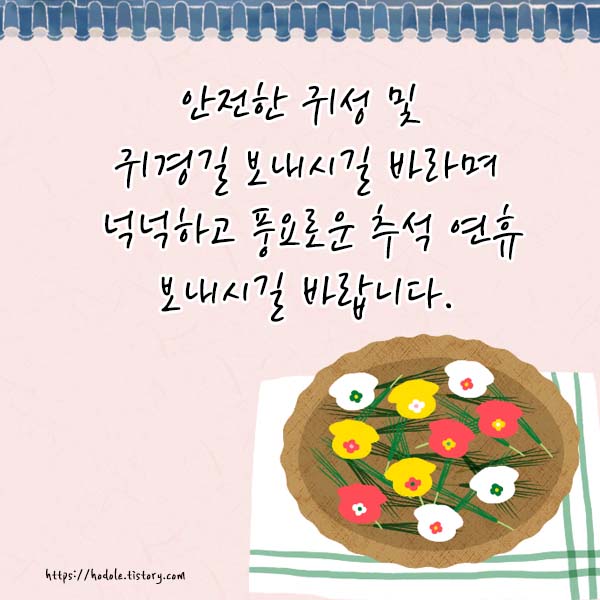 안전한 귀성 및
귀경길 보내시길 바라며
넉넉하고 풍요로운 추석 연휴
보내시길 바랍니다.
https://hodole.tistory.com